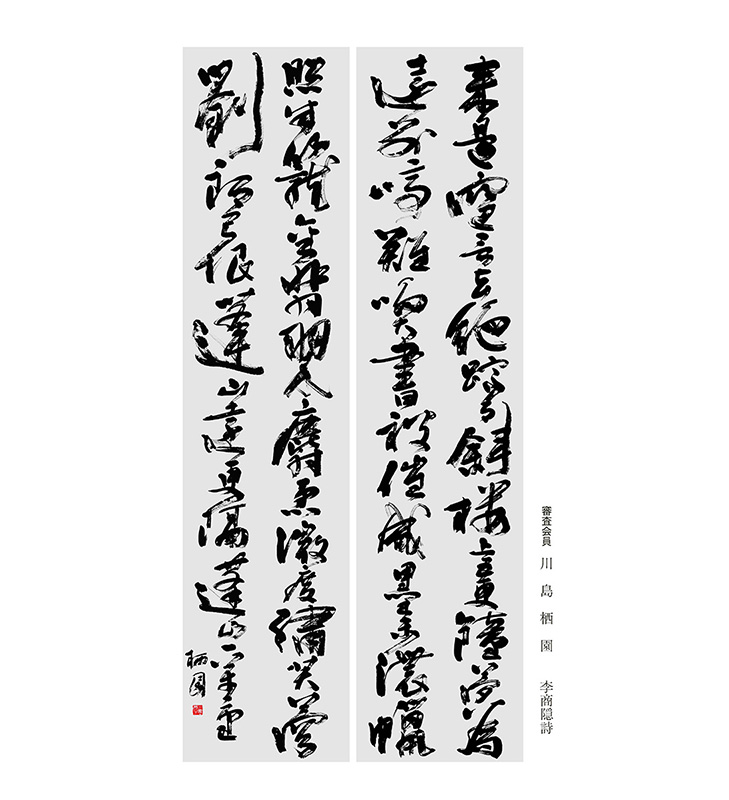 来是空言去絶蹤月斜楼上五更鐘夢為
遠別啼難喚書被催成墨未濃蠟
照半籠金翡翠麝熏微度繡芙蓉
劉郎已恨蓬山遠更隔蓬山一萬重
栖園
審査会員 川島栖園 李商隠詩